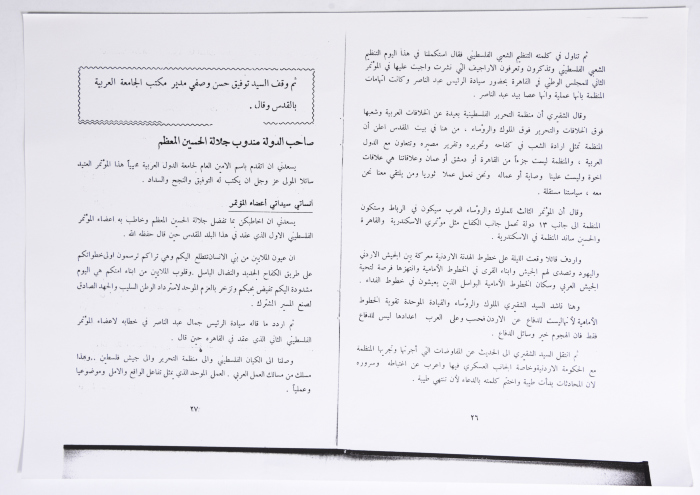 ثم تناول في كلمته التنظيم الشعبي الفلسطيني فقال استكملنا في هذا اليوم التنظيم
الشعبي الفلسطيني وتذكرون وتعرفون الاراجيف التي نشرت واجبت عليها في المؤتمر
الثاني للمجلس الوطني في القاهرة بحضور سيادة الرئيس عبد الناصر وكانت اتهامات
المنظمة بانها عميلة وانها عصا بيد عبد الناصر .
وقال الشقيري أن منظمة التحرير الفلسطينية بعيدة عن الخلافات العربية وشعبها
فوق الخلافات والتحرير فوق الملوك والرؤساء . من هنا في بيت المقدس اعلن أن
المنظمة تمثل ارادة الشعب في كفاحه وتحريره وتقرير مصيره وتتعاون مع الدول
العربية ، والمنظمة ليست جزءاً من القاهرة أو دمشق أو عمان وعلاقاتنا هي علاقات
اخوة وليست علينا وصاية أو عماله ونحن نعمل عملا ثوريا ومن يلتقي معنا نحن
معه ، سياستنا مستقلة .
وقال أن المؤتمر الثالث للملوك والرؤساء العرب سيكون في الرباط وستكون
المنظمة الى جانب ١٣ دولة تحمل جانب الكفاح مثل مؤتمري الاسكندرية والقاهرة
والحسين ساند المنظمة في الاسكندرية .
واردف قائلا وقعت الليلة على خطوط الهدنة الاردنية معركة بين الجيش الاردني
واليهود وتصدى لهم الجيش وابناء القرى في الخطوط الأمامية وانتهزها فرصة لتحية
الجيش العربي وسكان الخطوط الأمامية البواسل الذين يعيشون في خطوط الفداء .
وهنا ناشد السيد الشقيري الملوك والرؤساء والقيادة الموحدة تقوية الخطوط
الأمامية لأنها ليست للدفاع عن الاردن فحسب وعلى العرب اعدادها ليس للدفاع
فقط فان الهجوم خير وسائل الدفاع .
ثم انتقل السيد الشقيري الى الحديث عن المفاوضات التي أجرتها وتجريها المنظمة
مع الحكومة الاردنية وخاصة الجانب العسكري فيها واعرب عن اغتباطه وسروره
لان المحادثات بدأت طيبة واختتم كلمته بالدعاء لأن تنتهي طيبة .
٢٦
ثم وقف السيد توفيق حسن وصفي مدير مكتب الجامعة العربية
بالقدس وقال .
صاحب الدولة مندوب جلالة الحسين المعظم
يسعدني ان اتقدم باسم الامين العام لجامعة الدول العربية محيياً هذا المؤتمر العتيد
سائلا المولى عز وجل ان يكتب له التوفيق والنجح والسداد .
آنساتي سيداتي أعضاء المؤتمر
يسعدني ان اخاطبكم بما تفضل جلالة الحسين المعظم وخاطب به اعضاء المؤتمر
الفلسطيني الاول الذي عقد في هذا البلد المقدس حين قال حفظه الله .
ان عيون الملايين من بني الانسان تتطلع اليكم وهي تراكم ترسمون اولى خطواتكم
على طريق الكفاح الجديد والنضال الباسل . وقلوب الملايين من ابناء امتكم هي اليوم
مشدودة اليكم تفيض بحبكم وتزخر بالعزم الموحد لاسترداد الوطن السليب والجهد الصادق
لصنع المصير المشترك .
ثم اردد ما قاله سيادة الرئيس جمال عبد الناصر في خطابه لاعضاء المؤتمر
الفلسطيني الثاني الذي عقد في القاهره حين قال .
وصلنا الى الكيان الفلسطيني والى منظمة التحرير والى جيش فلسطين .. وهذا
مسلك من مسالك العمل العربي . العمل الموحد الذي يمثل تفاعل الواقع والامل وموضوعيا
وعملياً .
٢٧